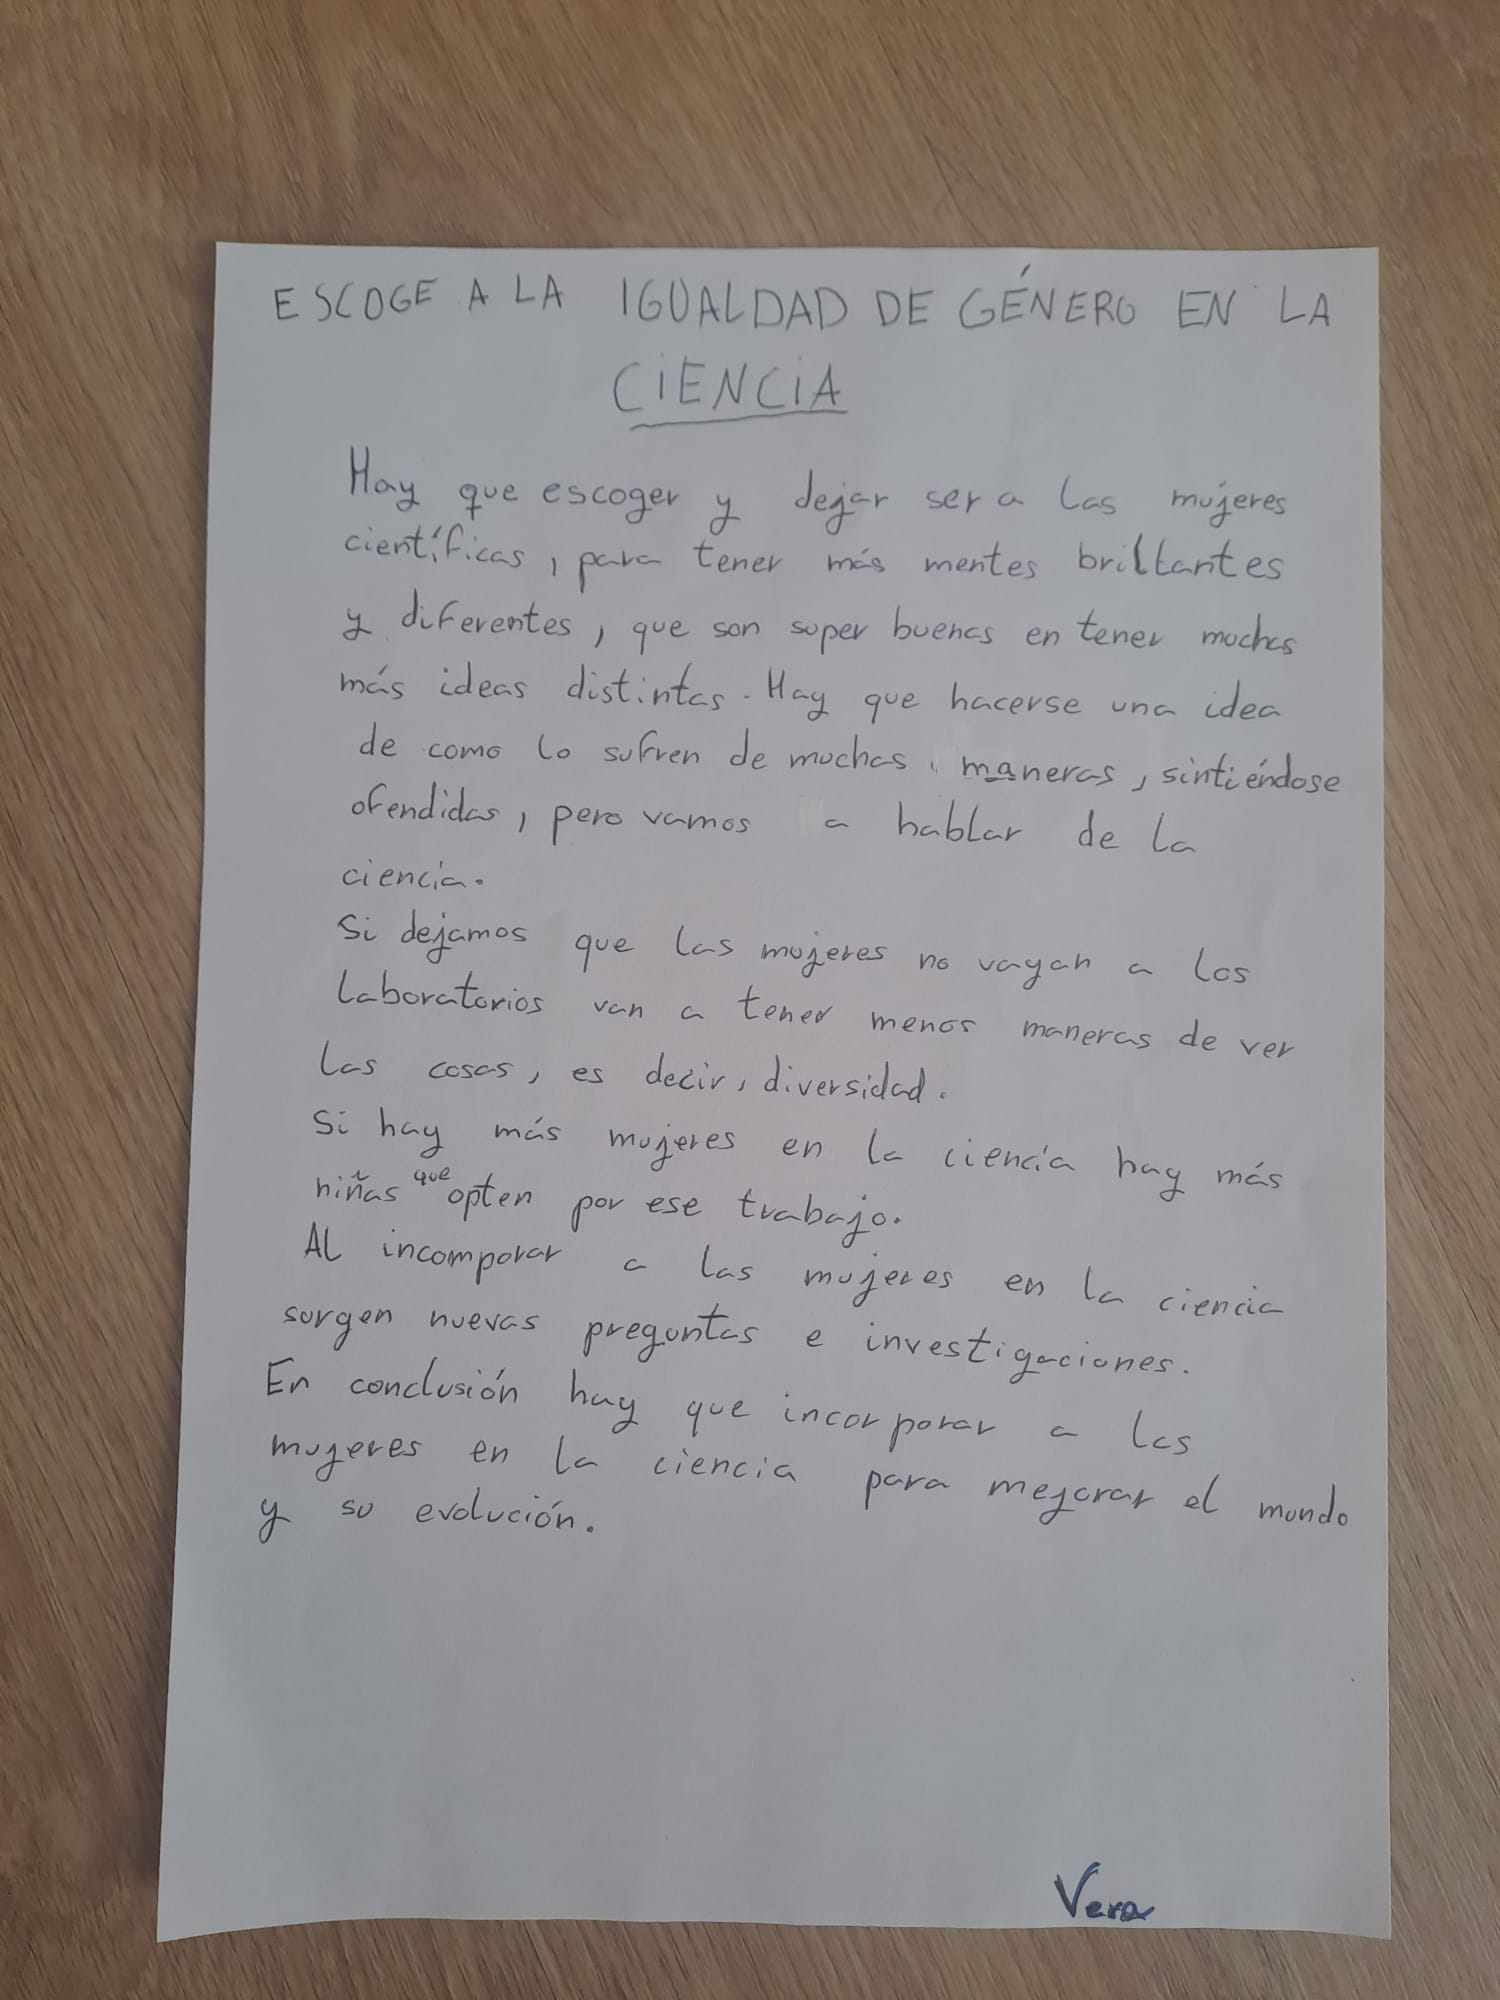 ESCOGE A LA IGUALDAD DE GÉNERO EN LA
CIENCIA
Hay que escoger y dejar ser a las mujeres
científicas, para tener más mentes brillantes
y diferentes, que son super buenas en tener muchas
más ideas distintas. Hay que hacerse una idea
de como lo sufren de muchas maneras, sintiéndose
ofendidas, pero vamos a hablar de la
ciencia.
Si dejamos que las mujeres no vayan a los
laboratorios van a tener menos maneras de ver
las cosas, es decir, diversidad.
Si hay más mujeres en la ciencia hay más
niñas que opten por ese trabajo.
Al incomporar a las mujeres en la ciencia
surgen nuevas preguntas e investigaciones.
En conclusión hay que incorporar a las
mujeres en la ciencia para mejorar el mundo
y su evolución.
Vera